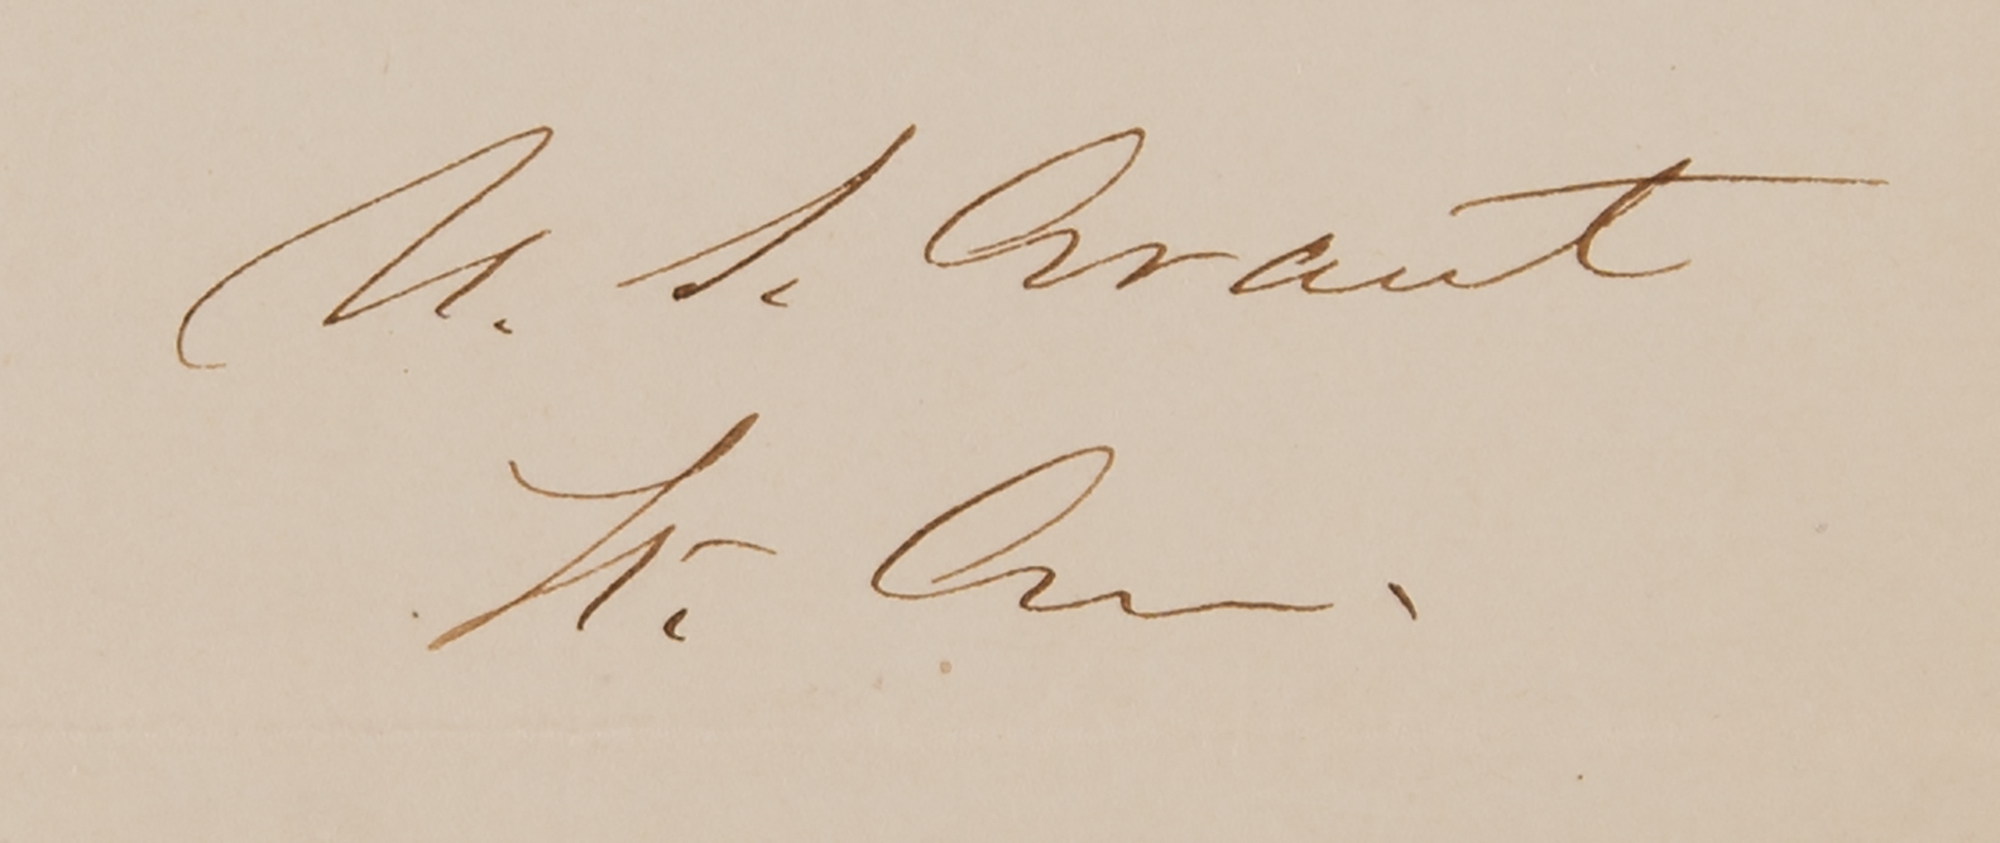 U. S. Grant
Lt. Gen.